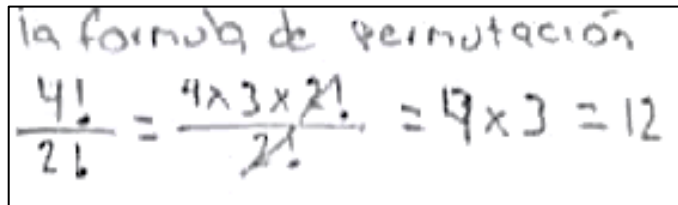 la formula de permutación
4!/2! = 4x3x2!/2! = 4x3 = 12